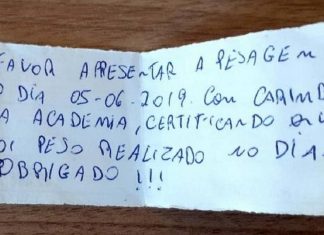 FAVOR APRESENTAR A PESAGEM
DIA 05-06-2019. COM CARIMBO
A ACADEMIA, CERTIFICANDO QU
OI PESO REALIZADO NO DIA.
OBRIGADO !!!